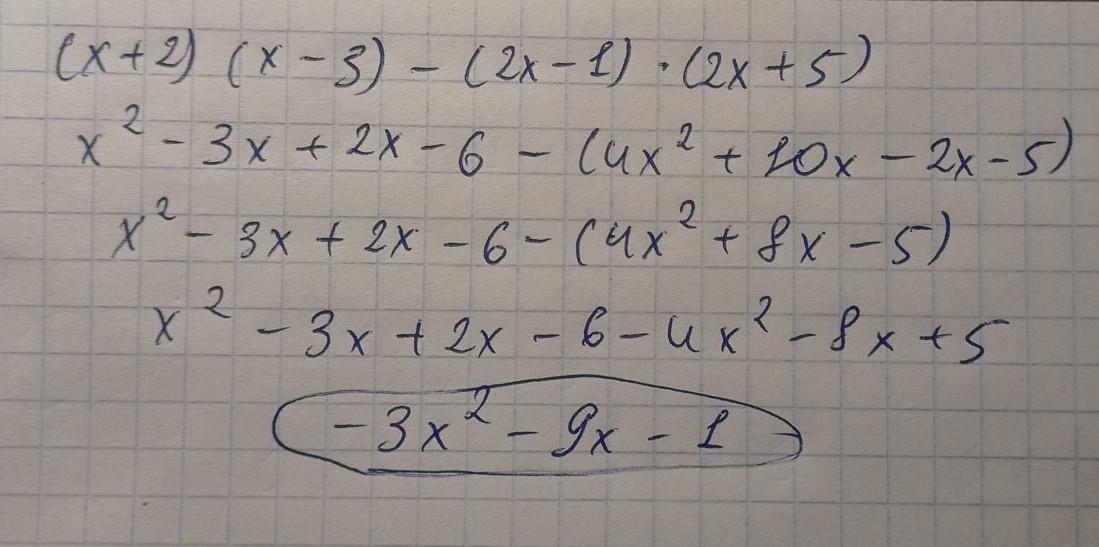 (x+2) (x-3) - (2x-1) · (2x+5)
x² - 3x + 2x - 6 - (4x² + 10x - 2x - 5)
x² - 3x + 2x - 6 - (4x² + 8x - 5)
x² - 3x + 2x - 6 - 4x² - 8x + 5
-3x² - 9x - 1